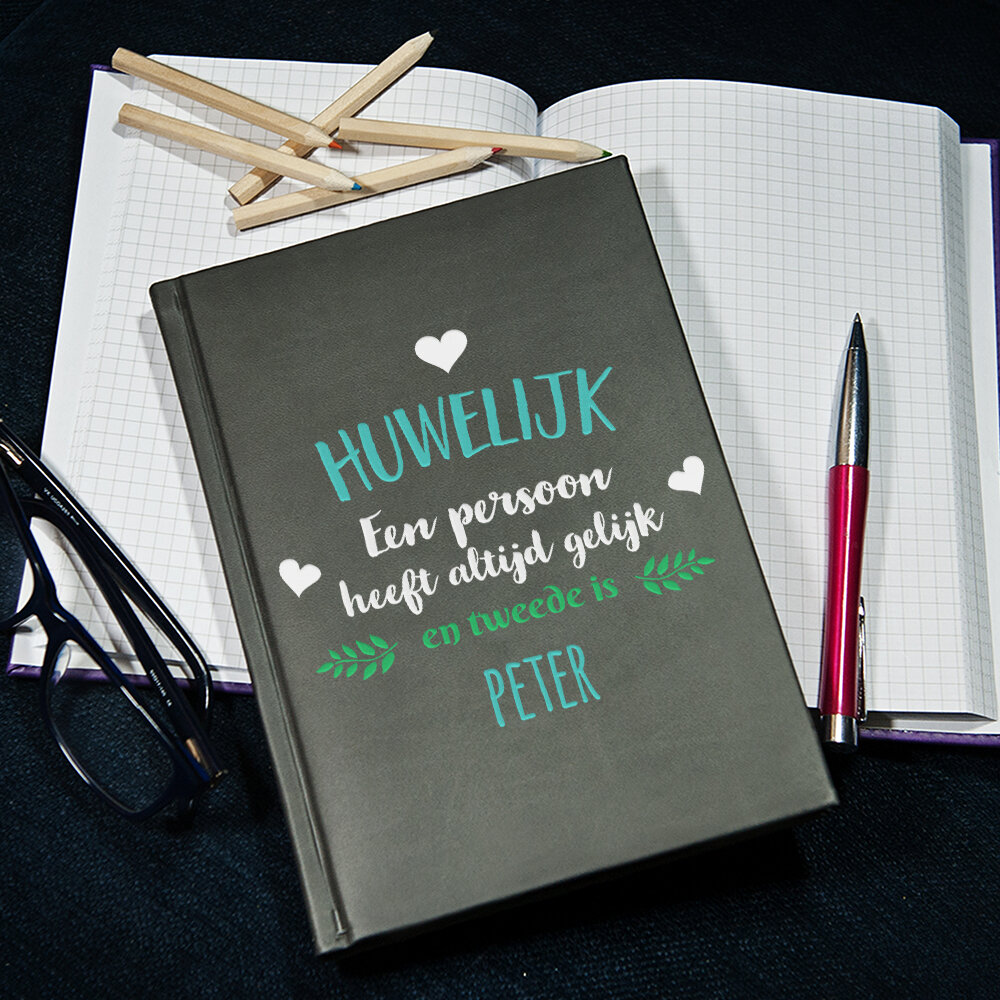 HUWELIJK
Een persoon
heeft altijd gelijk
en tweede is
PETER